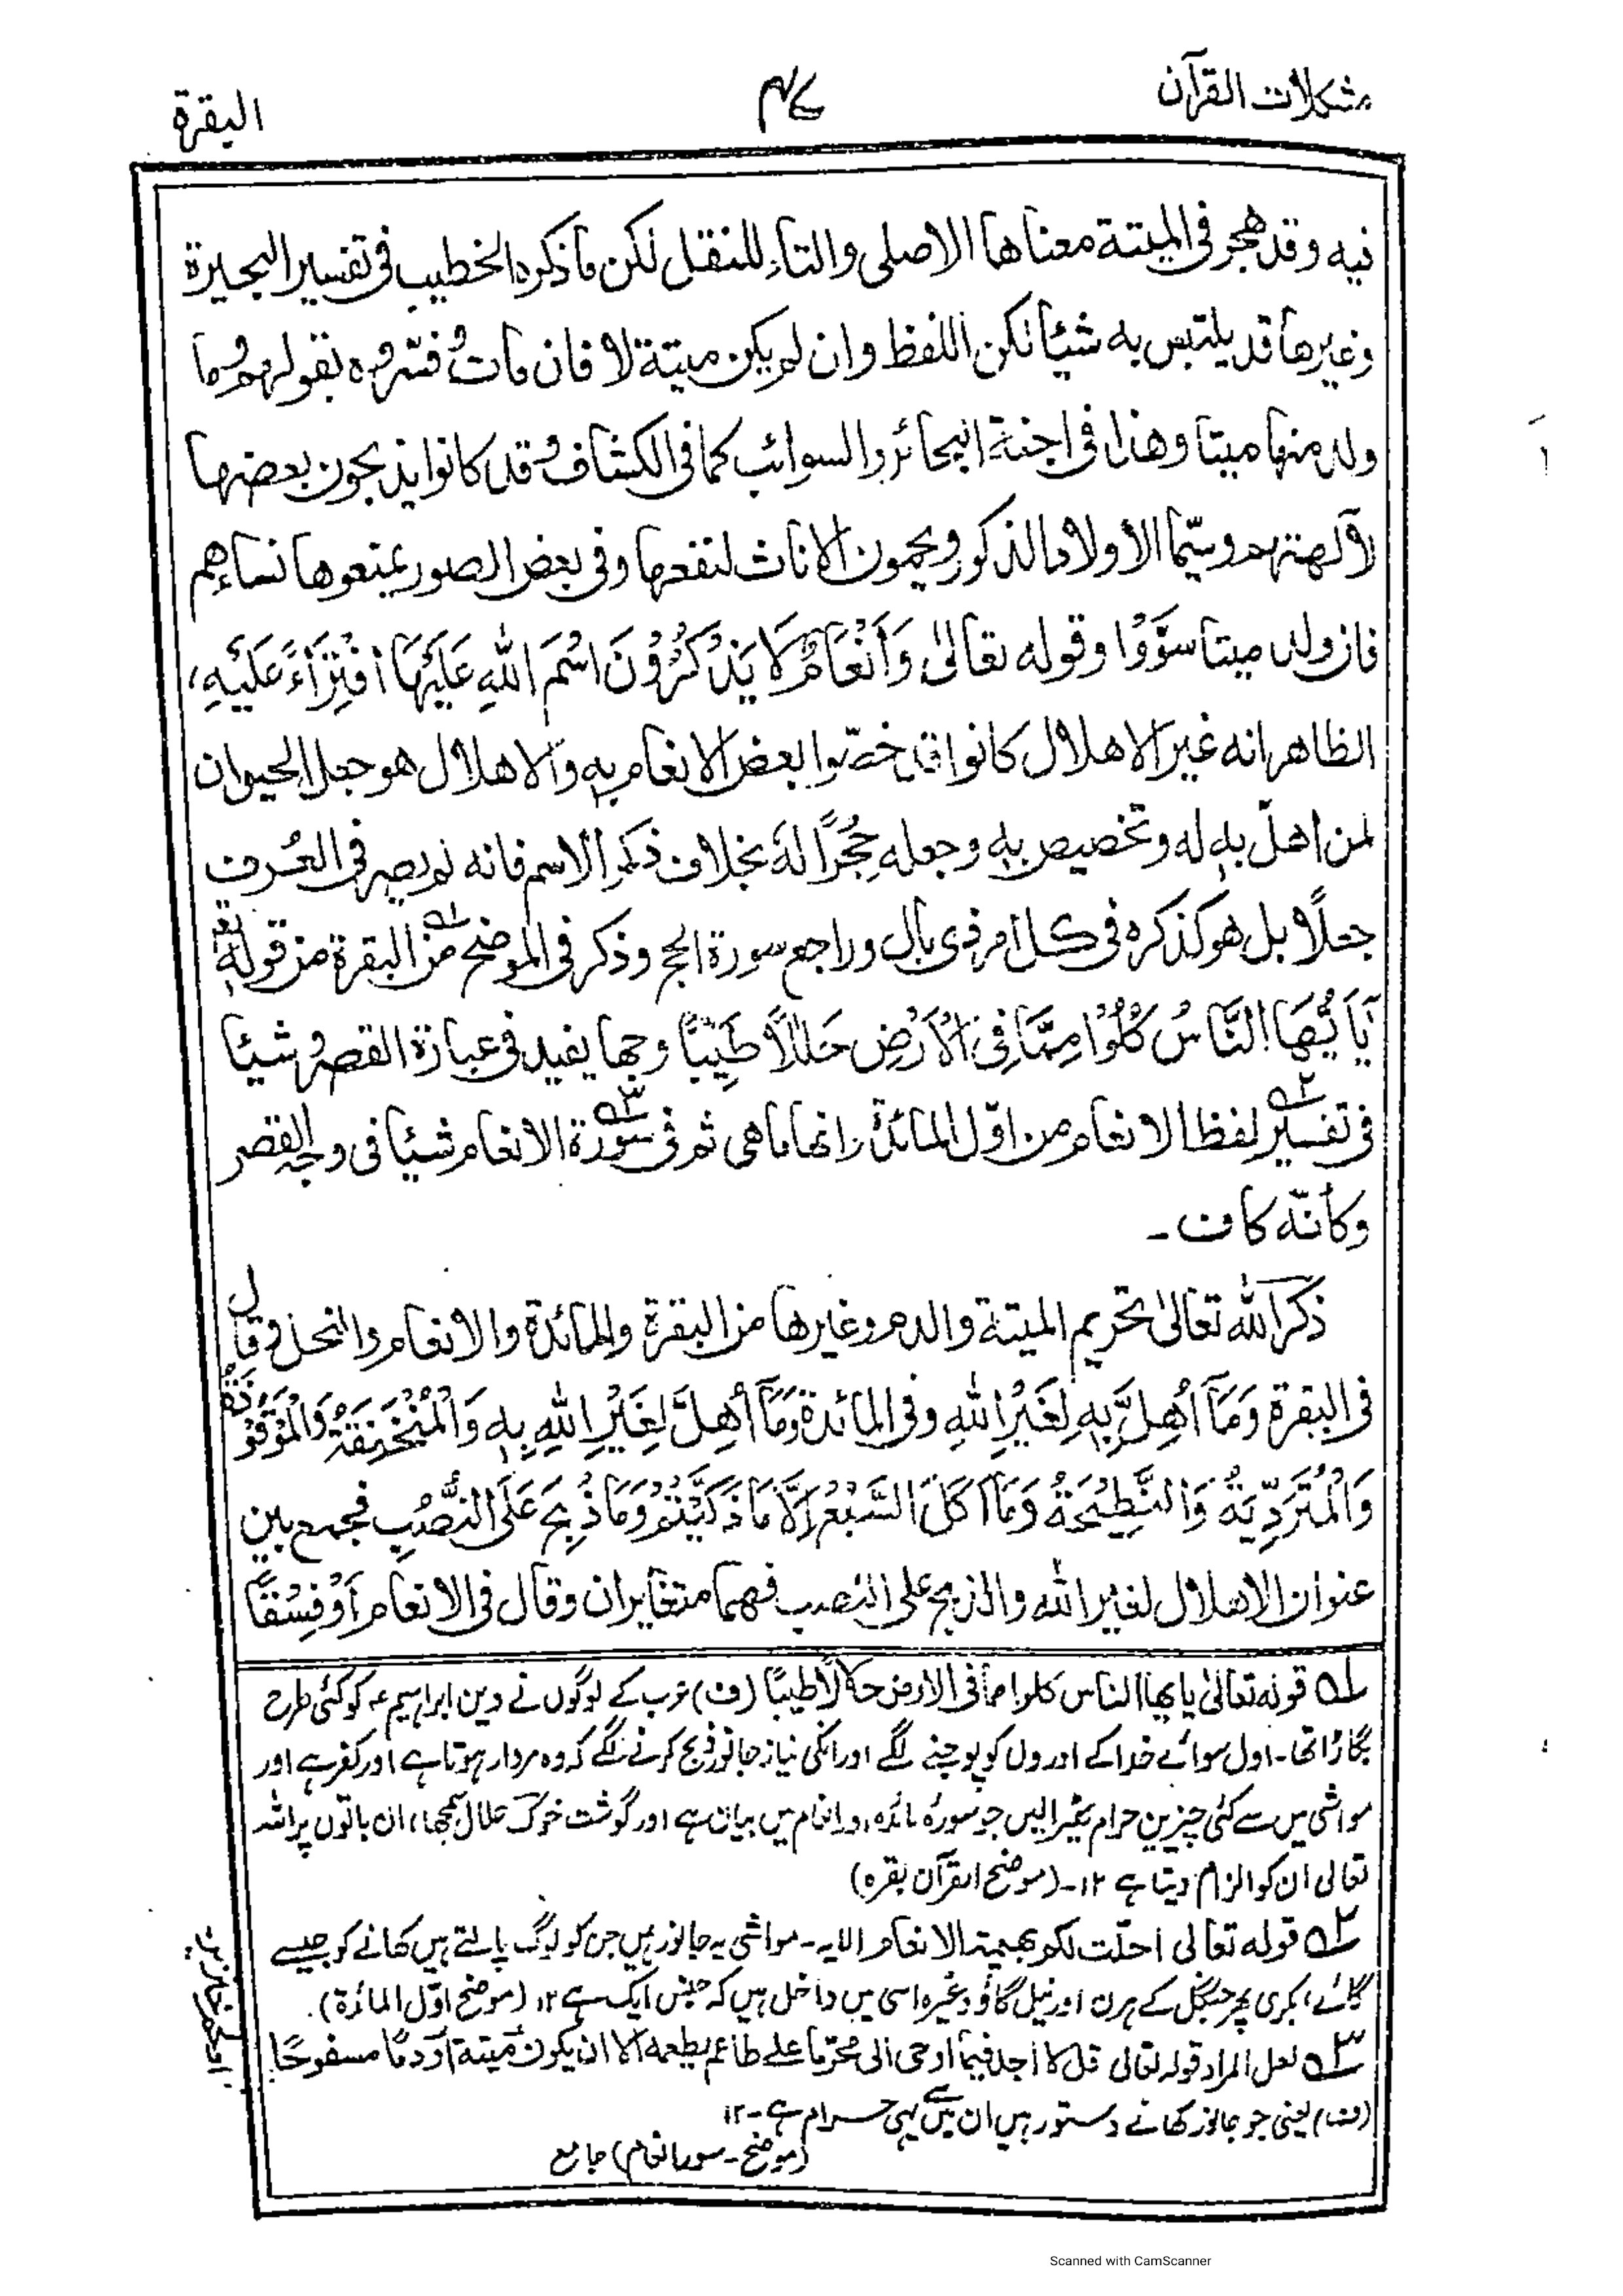 مشكلات القرآن
٤٧
البقرة
فيه وقد هجر فى الميتة معناها الاصلى والتاء للنقل لكن ما ذكره الخطيب فى تفسير البحيرة
وغيرها قد يلتبس به شيئا لكن اللفظ وان لم يكن ميتة لا فان مات وفسّروه بقولهم وما
ولد منها ميتا وهذا فى اجنة البحائر والسوائب كما فى الكشاف وقد كانوا يذبحون بعضها
لآلهتهم وسيّما الأولاد الذكور ويحمون الاناث لنفعها وفى بعض الصور يمنعوها نساءهم
فان ولد ميتا سوّوا وقوله تعالىٰ وَأَنْعَامٌ لَا يَذْكُرُوْنَ اسْمَ اللّٰهِ عَلَيْهَا افْتِرَآءً عَلَيْهِ،
الظاهر انه غير الاهلال كانوا قد خصّوا بعض الانعام بهٖ والاهلال هو جعل الحيوان
لمن اهلّ بهٖ له وتخصيص بهٖ وجعله حِجْرًا لهٗ بخلاف ذكر الاسم فانه لم يصر فى العُرف
جعلًا بل هو كذكره فى كل امر ذى بال وراجع سورة الحج وذكر فى الموضح ۱؎ من البقرة من قولهٖ تعالى
يَا يُّهَا النَّاسُ كُلُوْا مِمَّا فِى الْأَرْضِ حَلٰلًا طَيِّبًا وجها يفيد فى عبارة القصر وشيئا
فى تفسير ۲؎ لفظ الانعام من اوّل المائدة انها ماهى ثم فى سورة ۳؎ الانعام شيئا فى وجه القصر
وكأنّه كاف ـ
ذكر اللّٰه تعالىٰ تحريم الميتة والدم وغيرها من البقرة والمائدة والانعام والنحل وقال
فى البقرة وَمَآ أُهِلَّ بِهٖ لِغَيْرِ اللّٰهِ وفى المائدة وَمَآ أُهِلَّ لِغَيْرِ اللّٰهِ بِهٖ وَالْمُنْخَنِقَةُ وَالْمَوْقُوْذَةُ
وَالْمُتَرَدِّيَةُ وَالنَّطِيْحَةُ وَمَآ اَكَلَ السَّبُعُ اِلَّا مَا ذَكَّيْتُمْ وَمَا ذُبِحَ عَلَى النُّصُبِ فجمع بين
عنوان الاهلال لغير اللّٰه والذبح على النصب فهما متغايران وقال فى الانعام أَوْ فِسْقًا
۱؎ قوله تعالىٰ يا يها الناس كلوا مما فى الارض حلالًا طيبًا (ف) عرب کے لوگوں نے دین ابراہیم ؑ کو کئی طرح
بگاڑا تھا۔ اول سوائے خدا کے اوروں کو پوجنے لگے اور انکی نیاز جانور ذبح کرنے لگے کہ وہ مردار ہوتا ہے اور کفر ہے اور
مواشی میں سے کئی چیزیں حرام ٹھیرالیں جو سورۂ مائدہ، و انعام میں بیان ہے اور گوشت خوک حلال سمجھا، ان باتوں پر اللہ
تعالی ان کو الزام دیتا ہے ۱۲۔ (موضح القرآن بقرہ)
۲؎ قوله تعالى احلّت لكم بهيمة الانعام الايه۔ مواشی یہ جانور ہیں جن کو لوگ پالتے ہیں کھانے کو جیسے
گائے، بکری پھر جنگل کے ہرن اور نیل گاؤ وغیرہ اسی میں داخل ہیں کہ جنس ایک ہے ۱۲ (موضح اوّل المائدة)۔
۳؎ لعل المراد قوله تعالى قل لا اجد فيما اوحى الى محرّما على طاعم يطعمه الا ان يكون ميتة أو دمًا مسفوحًا
(ف) یعنی جو جانور کھانے دستور ہیں ان میں سے یہی حرام ہے۔ ۱۲
(موضح۔ سورۃ انعام) جامع
Scanned with CamScanner